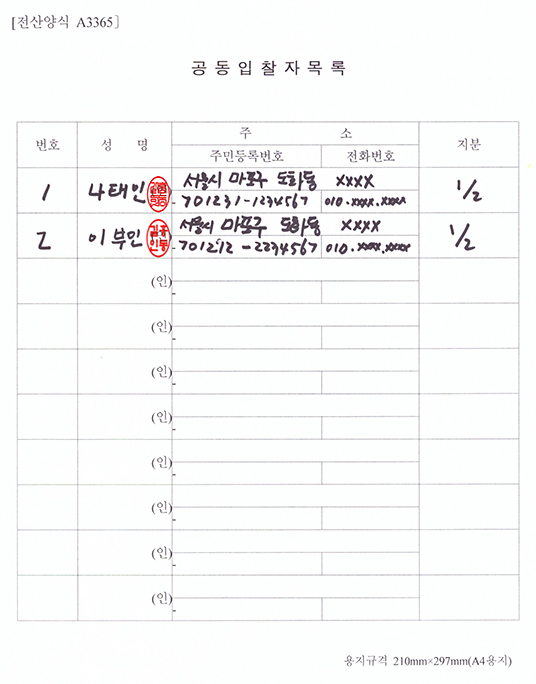 [전산양식 A3365]
공 동 입 찰 자 목 록
번호 성 명 주 소 지분
주민등록번호 전화번호
1 나태인 서울시 마포구 도화동 XXXX 1/2
701231-1234567 010.xxxx.xxxx
2 이부인 서울시 마포구 도화동 XXXX 1/2
701212-2234567 010.xxxx.xxxx
(인)
-
(인)
-
(인)
-
(인)
-
(인)
-
(인)
-
(인)
-
(인)
-
용지규격 210mm×297mm(A4용지)